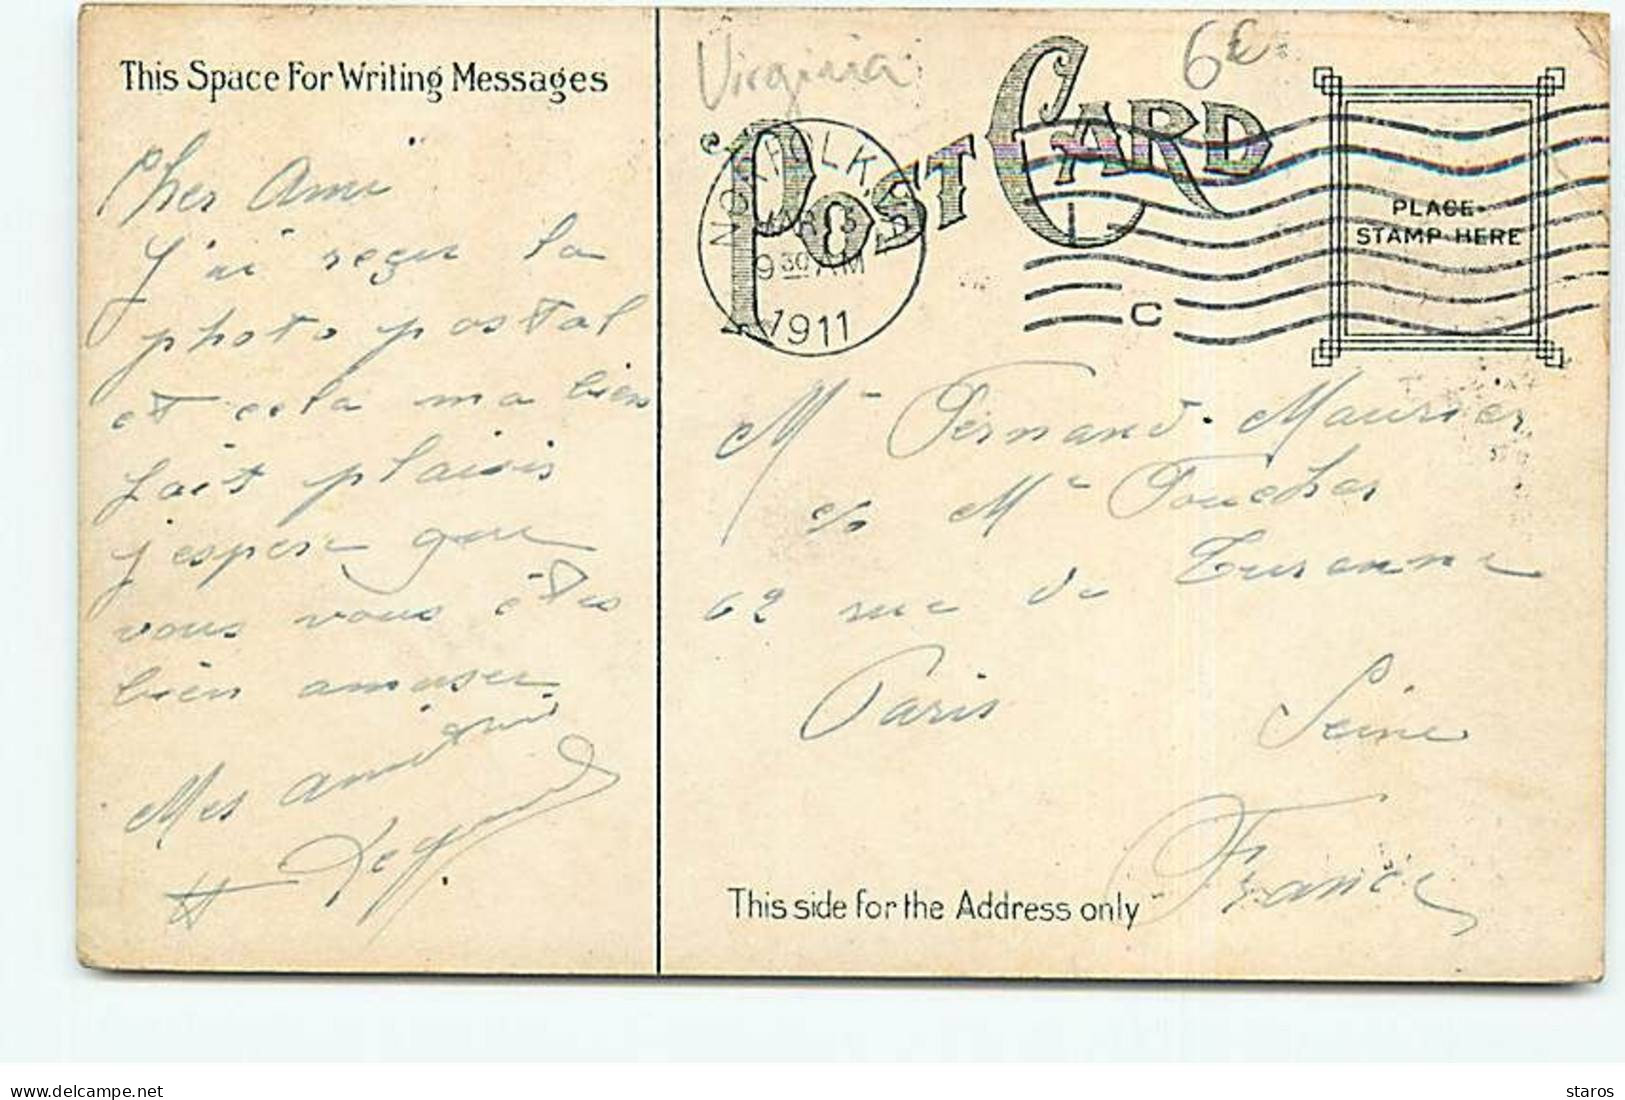 This Space For Writing Messages
Cher Ami
J'ai reçu la
photo postal
et cela ma bien
fait plaisir
j'espere que
vous vous êtes
bien amuser
Mes amitiés
Virginia
6€
POST CARD
NORFOLK, VA
MAR 3
9 30 AM
1911
C
PLACE
STAMP HERE
Mr Fernand Maurier
c/o Mr Foucher
62 rue de Turenne
Paris Seine
France
This side for the Address only
delcampe.net
staros